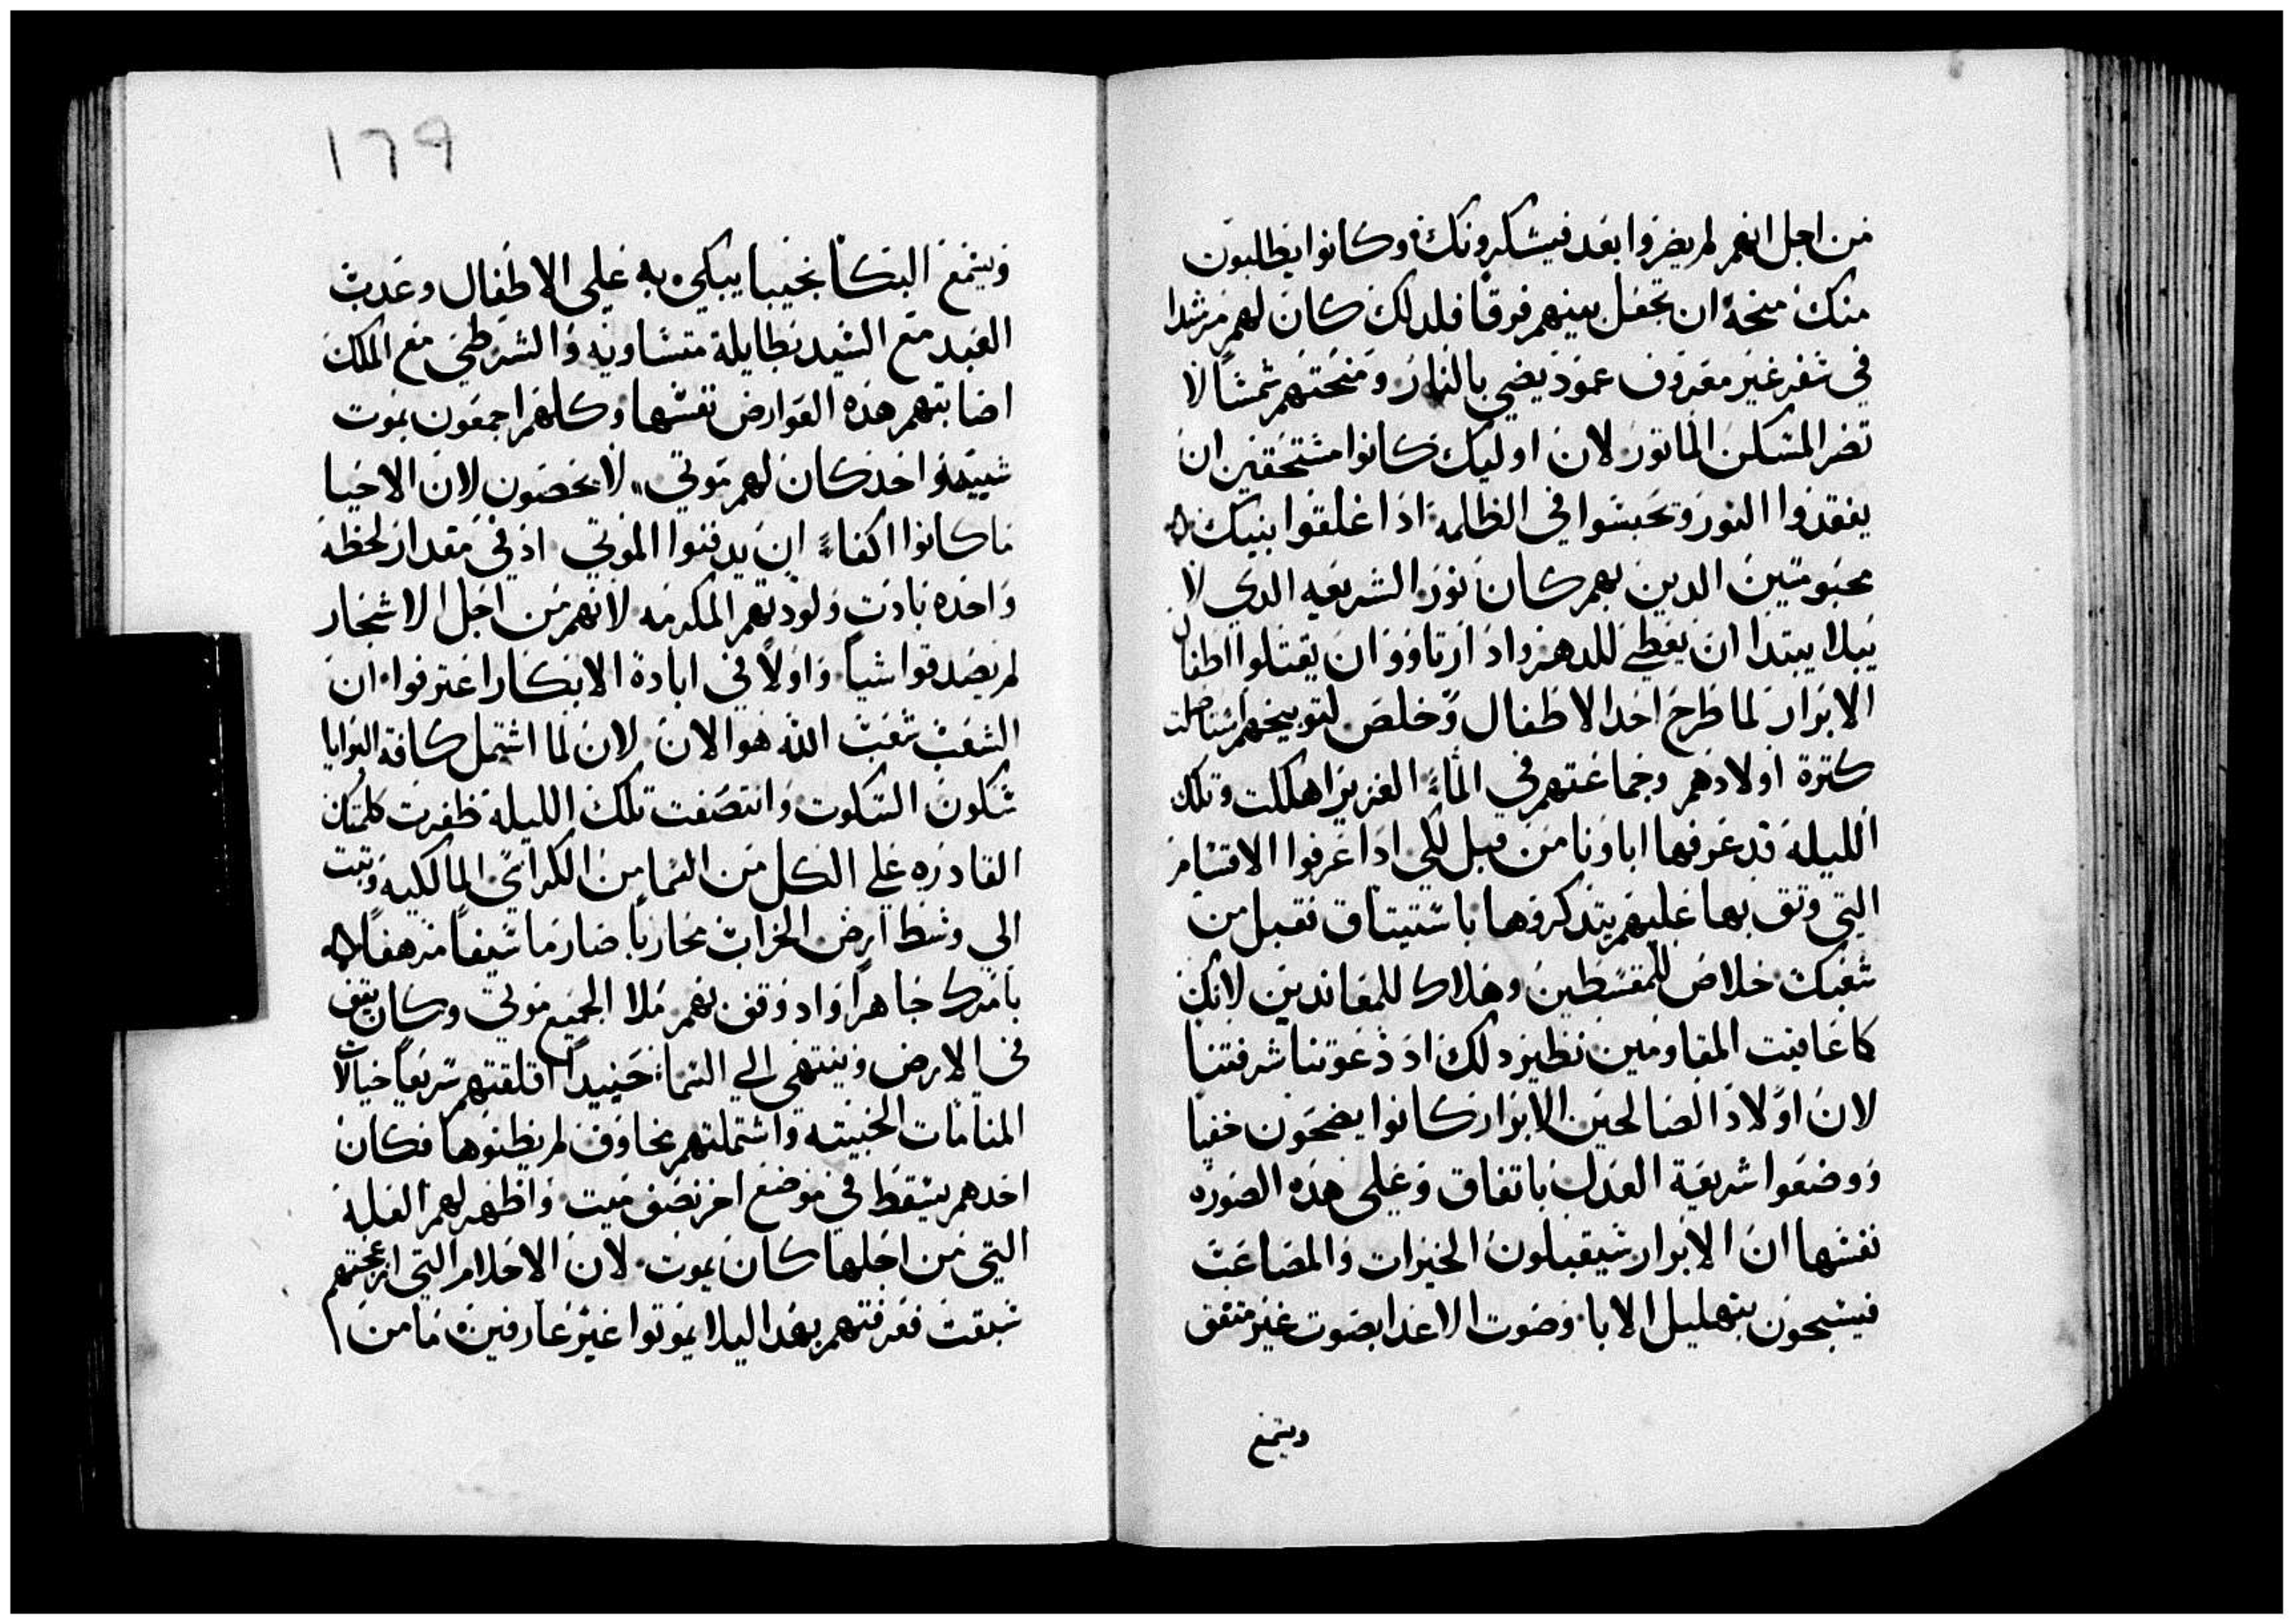 من اجل انهم لم يضروا بعد فيشكرونك وكانوا يطلبون
منك منحة ان تجعل بينهم فرقا فلدلك كان لهم مرشدا
في سفر غير معروف عمود يضي بالنار ومنحتهم شمسا لا
تضر المسكن الماتور لان اوليك كانوا مستحقين ان
يفقدوا النور وتحبسوا في الظلمه ادا غلقوا بنيك
محبوسين الدين بهم كان نور الشريعه الدي لا
يبلا يبتدا ان يعطي للدهر واد ارتاووا ان يقتلوا اطفال
الابرار لما طرح احد الاطفال وخلص لتوبيخهم استاصلت
كترة اولادهم وجماعتهم في الماء الغزير اهلكت وتلك
الليلة قد عرفها اباونا من قبل لكي ادا عرفوا الاقسام
التي وتق بها عليهم يتدكروها باستيتاق فقبل من
شعبك خلاص للمقسطين وهلاك للمعاندين لانك
كما عاقبت المقاومين نظير دلك اد دعوتنا شرفتنا
لان اولاد الصالحين الابرار كانوا يضحون خفيا
ووضعوا شريعة العدل باتفاق وعلى هده الصوره
نفسها ان الابرار سيقبلون الخيرات والمصاعب
فيسبحون بتهليل الابا وصوت الاعدا بصوت غير متفق
ويسمع
١٦٩
ويسمع البكا نحيبا يبكي به علي الاطفال وعدبت
العبد مع السيد بطايلة متساويه والشرطي مع الملك
اصابتهم هده العوارض نفسها وكلهم اجمعون بموت
شبيهه واحد كان لهم موتي لا يحصون لان الاحيا
ما كانوا اكفاء ان يدفنوا الموتي اد في مقدار لحظه
واحده بادت ولودتهم المكرمه لانهم من اجل الاسحار
لم يصدقوا شيا واولا في ابادة الابكار اعترفوا ان
الشعب شعب الله هو الان لان لما اشتمل كافة البرايا
سكون السكوت وانتصفت تلك الليلة ظفرت كلمتك
القادره علي الكل من السما من الكراسي المالكيه وتبت
الي وسط ارض الخراب محاربا صارما سيفا مرهفا
بامرك جاهرا واد وقف بهم ملا الجميع موتي وكان يقف
في الارض وينتهي الي السما حينيدا اقلقتهم سريعا خيالات
المنامات الخبيته واشتملتهم مخاوف لم يظنوها فكان
احدهم يسقط في موضع اخر نصف ميت واظهر لهم العلة
التي من اجلها كان يموت لان الاحلام التي ازعجتهم
سبقت فعرفتهم بهدا ليلا يموتوا غير عارفين ما من ا